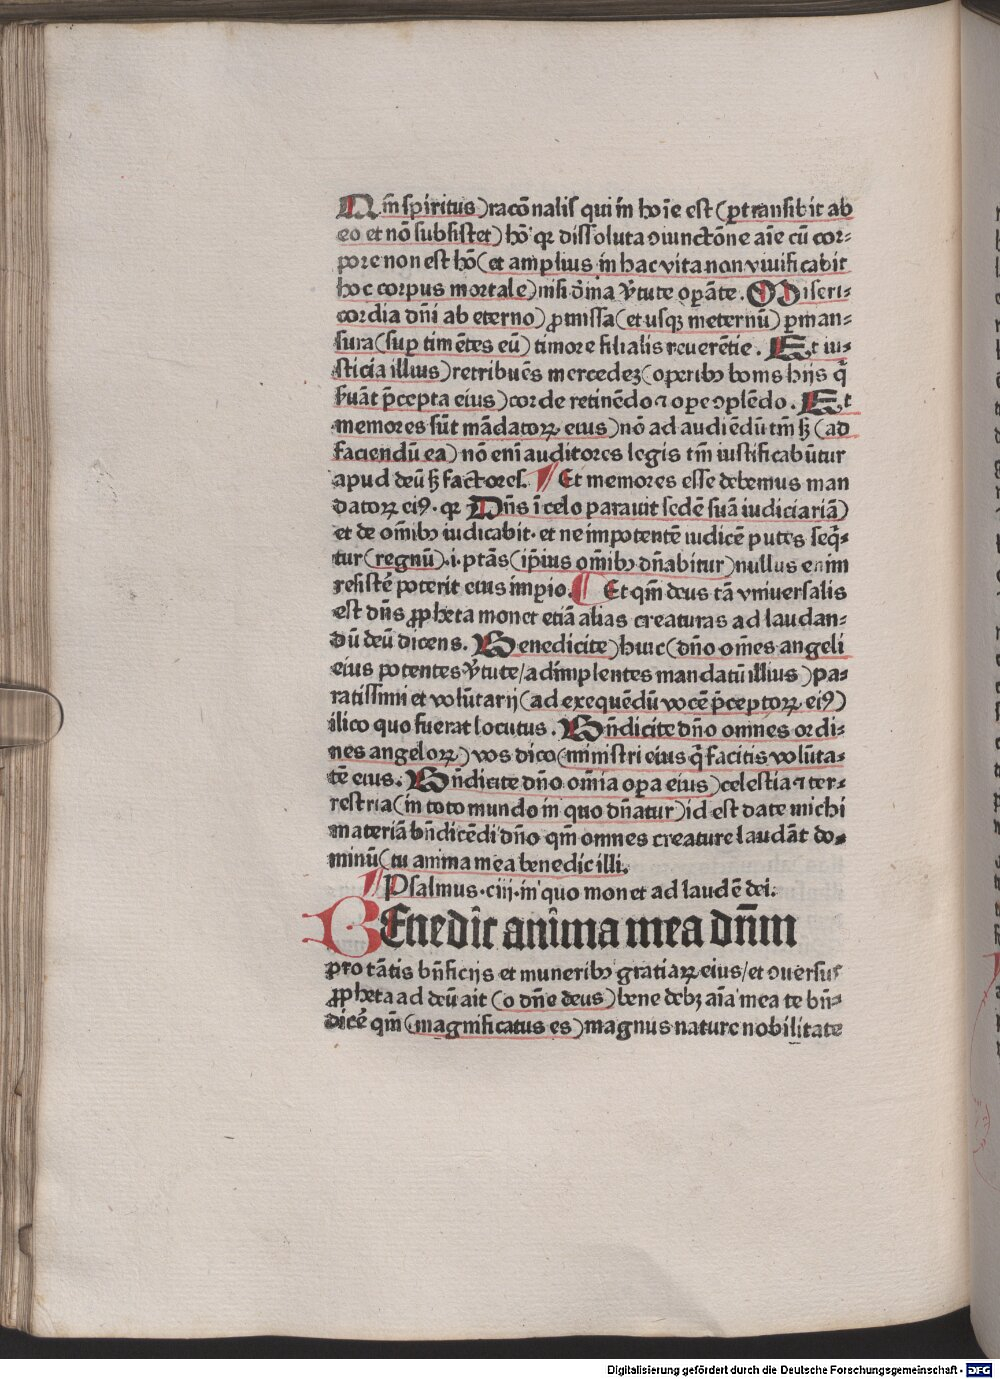 Qm̄ spiritus) racōnalis qui in hoīe est (ꝑtransibit ab
eo et nō subsistet) hō qꝛ dissoluta ↄiunctōne aīe cū cor-
pore non est hō (et amplius in hac vita non viuificabit
hoc corpus mortale) nisi diīna v̄tute oꝑāte. Miseri-
cordia dn̄i ab eterno) ꝓmissa (et usqꝫ in eternū) ꝑman-
sura (suꝑ timētes eū) timore filialis reuerētie. Et iu-
sticia illius) retribuēs mercedeꝫ (operibꝯ bonis hijs q̄
ẜuāt p̄cepta eius) corde retinēdo ⁊ oꝑe ↄplēdo. Et
memores sūt mādatoꝝ eius) nō ad audiēdū tm̄ ꝫ (ad
faciendū ea) nō enī auditores legis tm̄ iustificabūtur
apud deū ꝫ factores. ¶ Et memores esse debemus man
datoꝝ eiꝯ. qꝛ Dn̄s ī celo parauit sedē suā iudiciariā)
et de om̄ibꝯ iudicabit. et ne impotentē iudicē putes seq̄-
tur (regnū) .i. ptās (ip̄ius om̄ibꝯ dn̄abitur) nullus enim
resistē poterit eius imꝑio. ¶ Et qm̄ deus tā vniuersalis
est dn̄s ꝓpheta monet etiā alias creaturas ad laudan-
dū deū dicens. Benedicite) huic (dn̄o om̄es angeli
eius potentes v̄tute/ adimplentes mandatū illius) pa-
ratissimi et volūtarij (ad exequēdū vocē p̄ceptoꝝ eiꝯ)
ilico quo fuerat locutus. Bn̄dicite dn̄o omnes ordi-
nes angeloꝝ) vos dico (ministri eius q̄ facitis volūta-
tē eius. Bn̄dicite dn̄o om̄ia oꝑa eius) celestia ⁊ ter-
restria (in toto mundo in quo dn̄atur) id est date michi
materiā bn̄dicēdi dn̄o qm̄ omnes creature laudāt do-
minū (tu anima mea benedic illi.
¶ Psalmus .ciii. in quo monet ad laudē dei.
BEnedic anima mea dn̄m
pro tātis bn̄ficijs et muneribꝯ gratiaꝝ eius/ et ↄuersus
ꝓpheta ad deū ait (o dn̄e deus) bene debꝫ aīa mea te bn̄-
dicē qm̄ (magnificatus es) magnus nature nobilitate
Digitalisierung gefördert durch die Deutsche Forschungsgemeinschaft - DFG